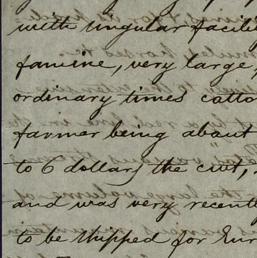 with singular facili
famine, very large,
ordinary times catto
farmer being about
to 6 dollars the cwt,
and was very recently
to be shipped for Eur